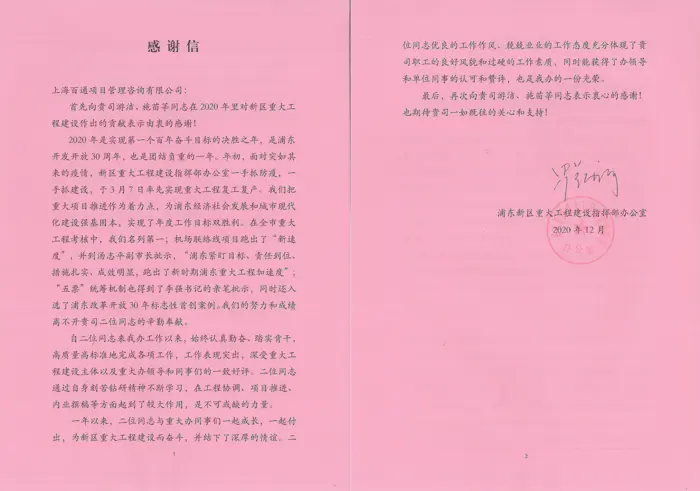 感谢信
上海百通项目管理咨询有限公司：
首先向贵司游洁、施苗苹同志在 2020 年里对新区重大工
程建设作出的贡献表示由衷的感谢！
2020 年是实现第一个百年奋斗目标的决胜之年，是浦东
开发开放 30 周年，也是团结负重的一年。年初，面对突如其
来的疫情，新区重大工程建设指挥部办公室一手抓防疫，一
手抓建设，于 3 月 7 日率先实现重大工程复工复产。我们把
重大项目推进作为着力点，为浦东经济社会发展和城市现代
化建设强基固本，实现了年度工作目标双胜利。在全市重大
工程考核中，我们名列第一；机场联络线项目跑出了“新速
度”，并列汤志平副市长批示，“浦东紧盯目标、责任到位、
措施扎实、成效明显，跑出了新时期浦东重大工程加速度”；
“五票”统筹机制也得到了李强书记的亲笔批示，同时还入
选了浦东改革开放 30 年标志性首创案例。我们的努力和成绩
离不开贵司二位同志的辛勤奉献。
自二位同志来我办工作以来，始终认真勤奋、踏实肯干，
高质量高标准地完成各项工作，工作表现突出，深受重大工
程建设主体以及重大办领导和同事们的一致好评。二位同志
通过自身刻苦钻研精神不断学习，在工程协调、项目推进、
内业撰稿等方面起到了较大作用，是不可或缺的力量。
一年以来，二位同志与重大办同事们一起成长，一起付
出，为新区重大工程建设而奋斗，并结下了深厚的情谊。二
1
位同志优良的工作作风、兢兢业业的工作态度充分体现了贵
司职工的良好风貌和过硬的工作素质，同时能获得了办领导
和单位同事的认可和赞许，也是我办的一份光荣。
最后，再次向贵司游洁、施苗苹同志表示衷心的感谢！
也期待贵司一如既往的关心和支持！
浦东新区重大工程建设指挥部办公室
2020 年 12 月
办公室
2